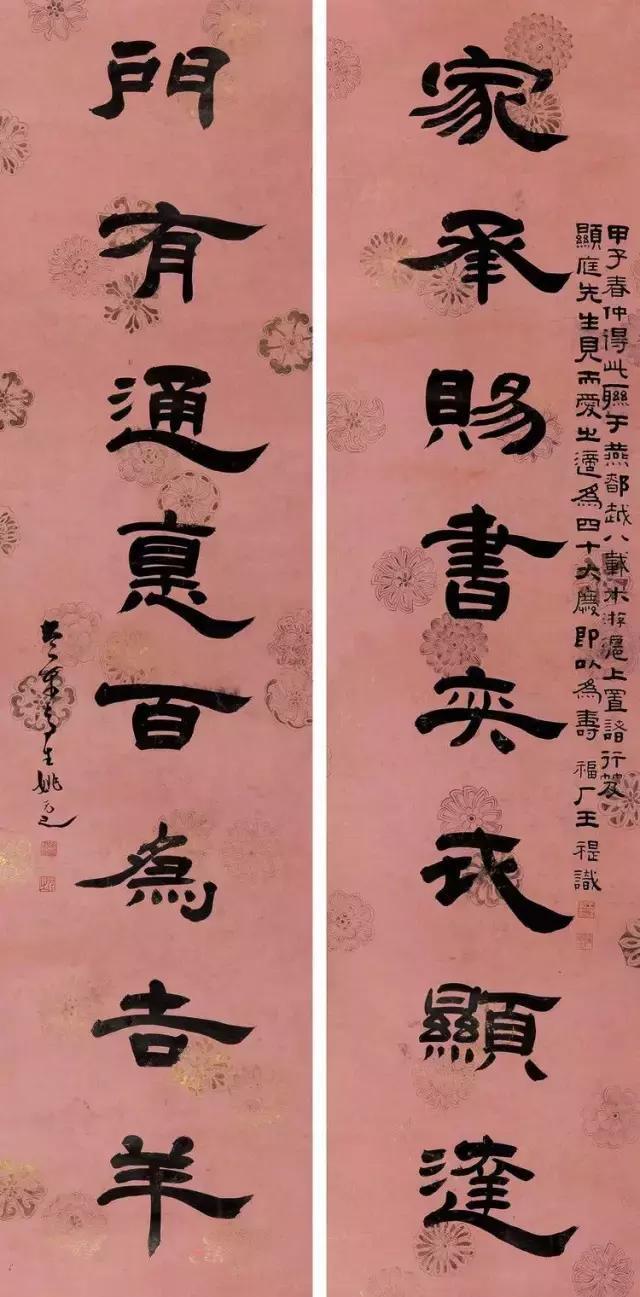 甲子春仲得此聯于燕都越八載來游滬上置諸行笈
顯庭先生見而愛之適爲四十大慶即以爲壽 福厂王禔識
家承賜書奕顯達
門有通惪百爲吉羊
竹葉亭生姚元之